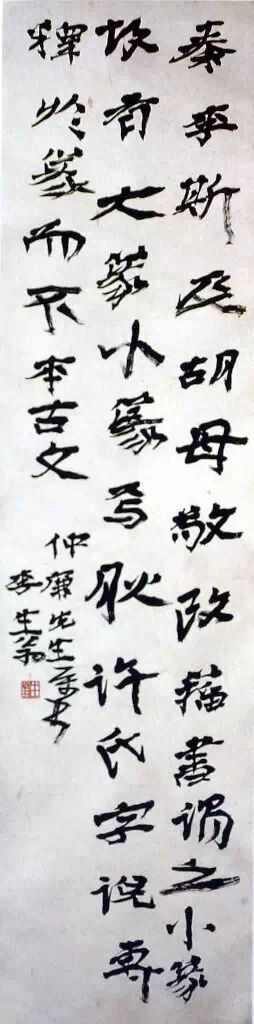 秦李斯及胡母敬改籀書謂之小篆
故有大篆小篆焉肰許氏字説專
釋於篆而不本古文
仲廉先生
李生翁